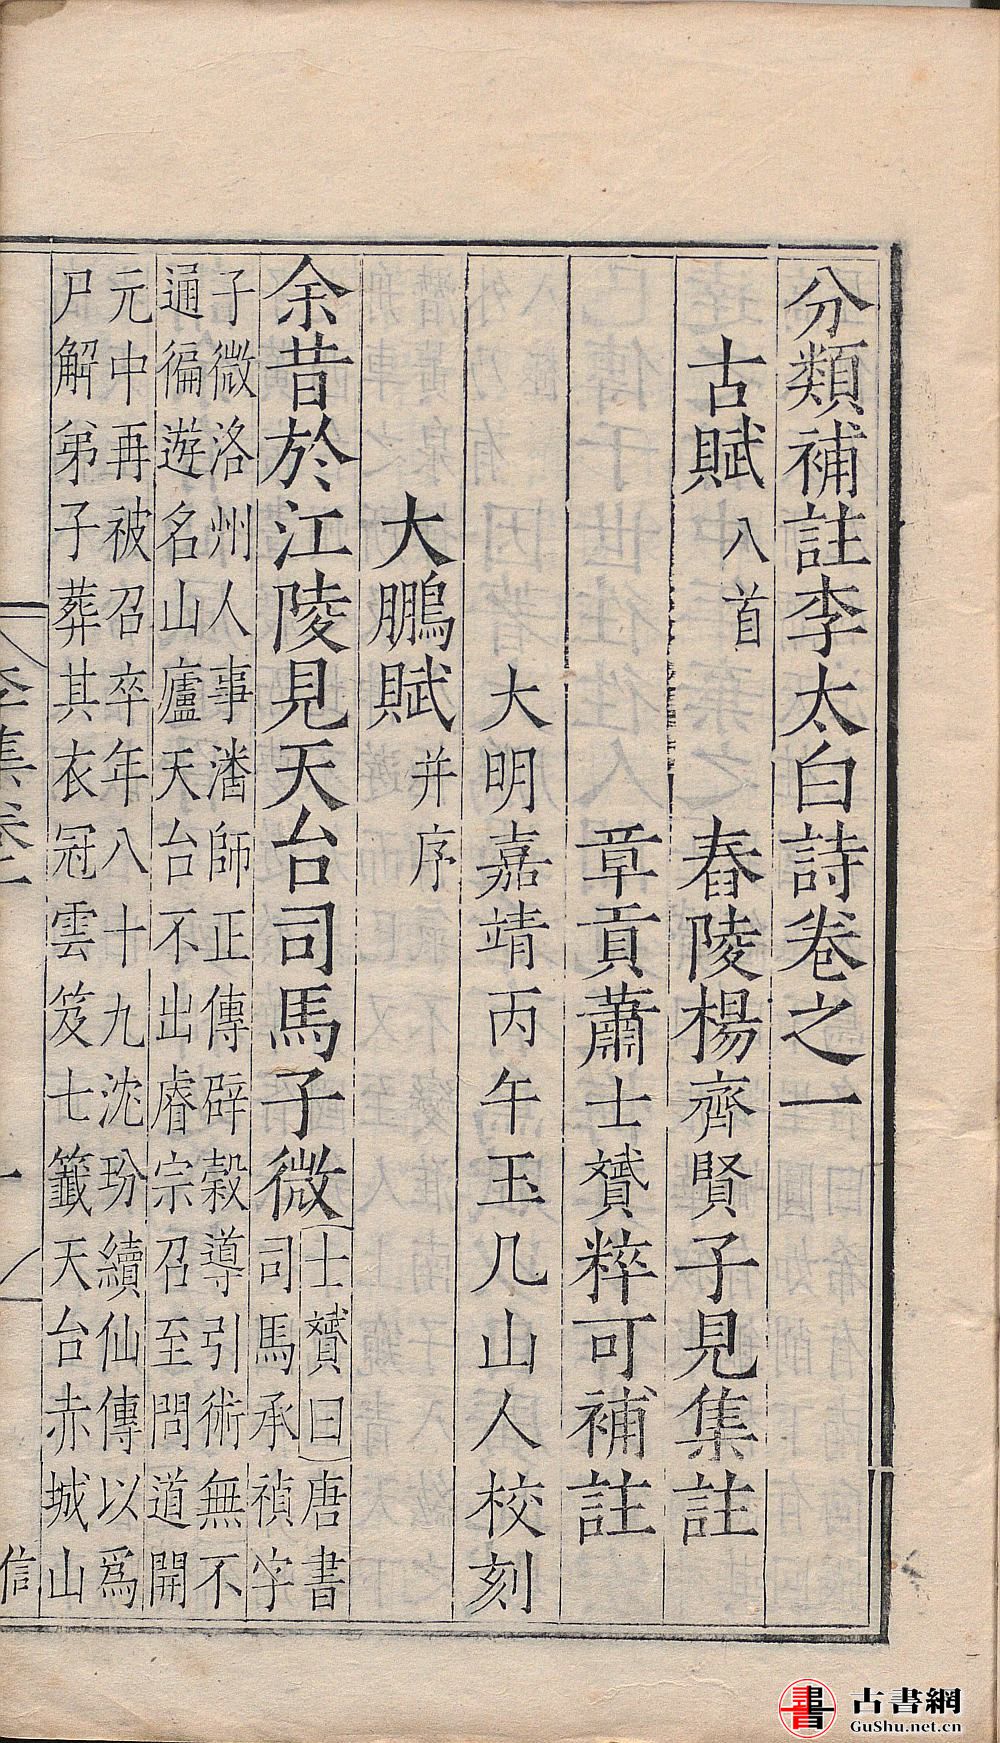 分類補註李太白詩卷之一
古賦 八首
舂陵楊齊賢子見集註
章貢蕭士贇粹可補註
大明嘉靖丙午玉几山人校刻
大鵬賦 并序
余昔於江陵見天台司馬子微
士贇曰唐書
司馬承禎字
子微洛州人事潘師正傳辟穀導引術無不
通徧遊名山廬天台不出睿宗召至問道開
元中再被召卒年八十九沈玢續仙傳以爲
尸解弟子葬其衣冠雲笈七籤天台赤城山
李集卷一
一
信
古書網
GuShu.net.cn